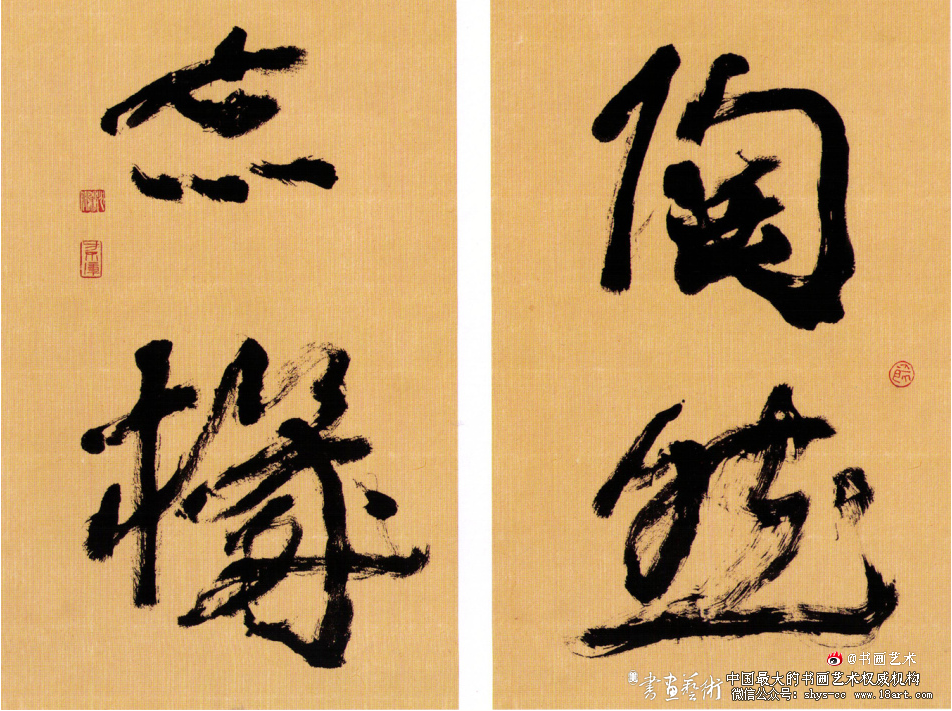 陶然
忘機
@书画艺术
書畫藝術
中国最大的书画艺术权威机构
微信公众号: shys-cc www.18art.com